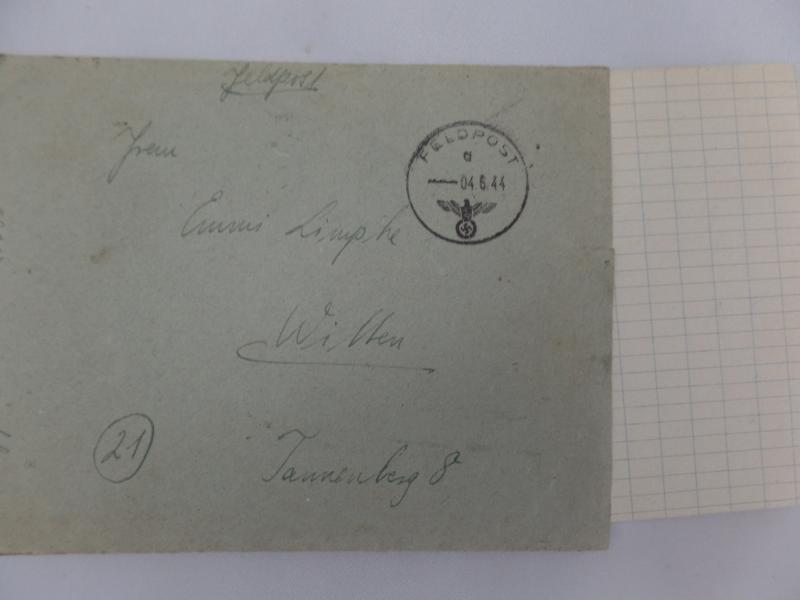 Feldpost
FELDPOST
a
04.6.44
Frau
Emmi Limpke
Witten
21
Tannenberg 8